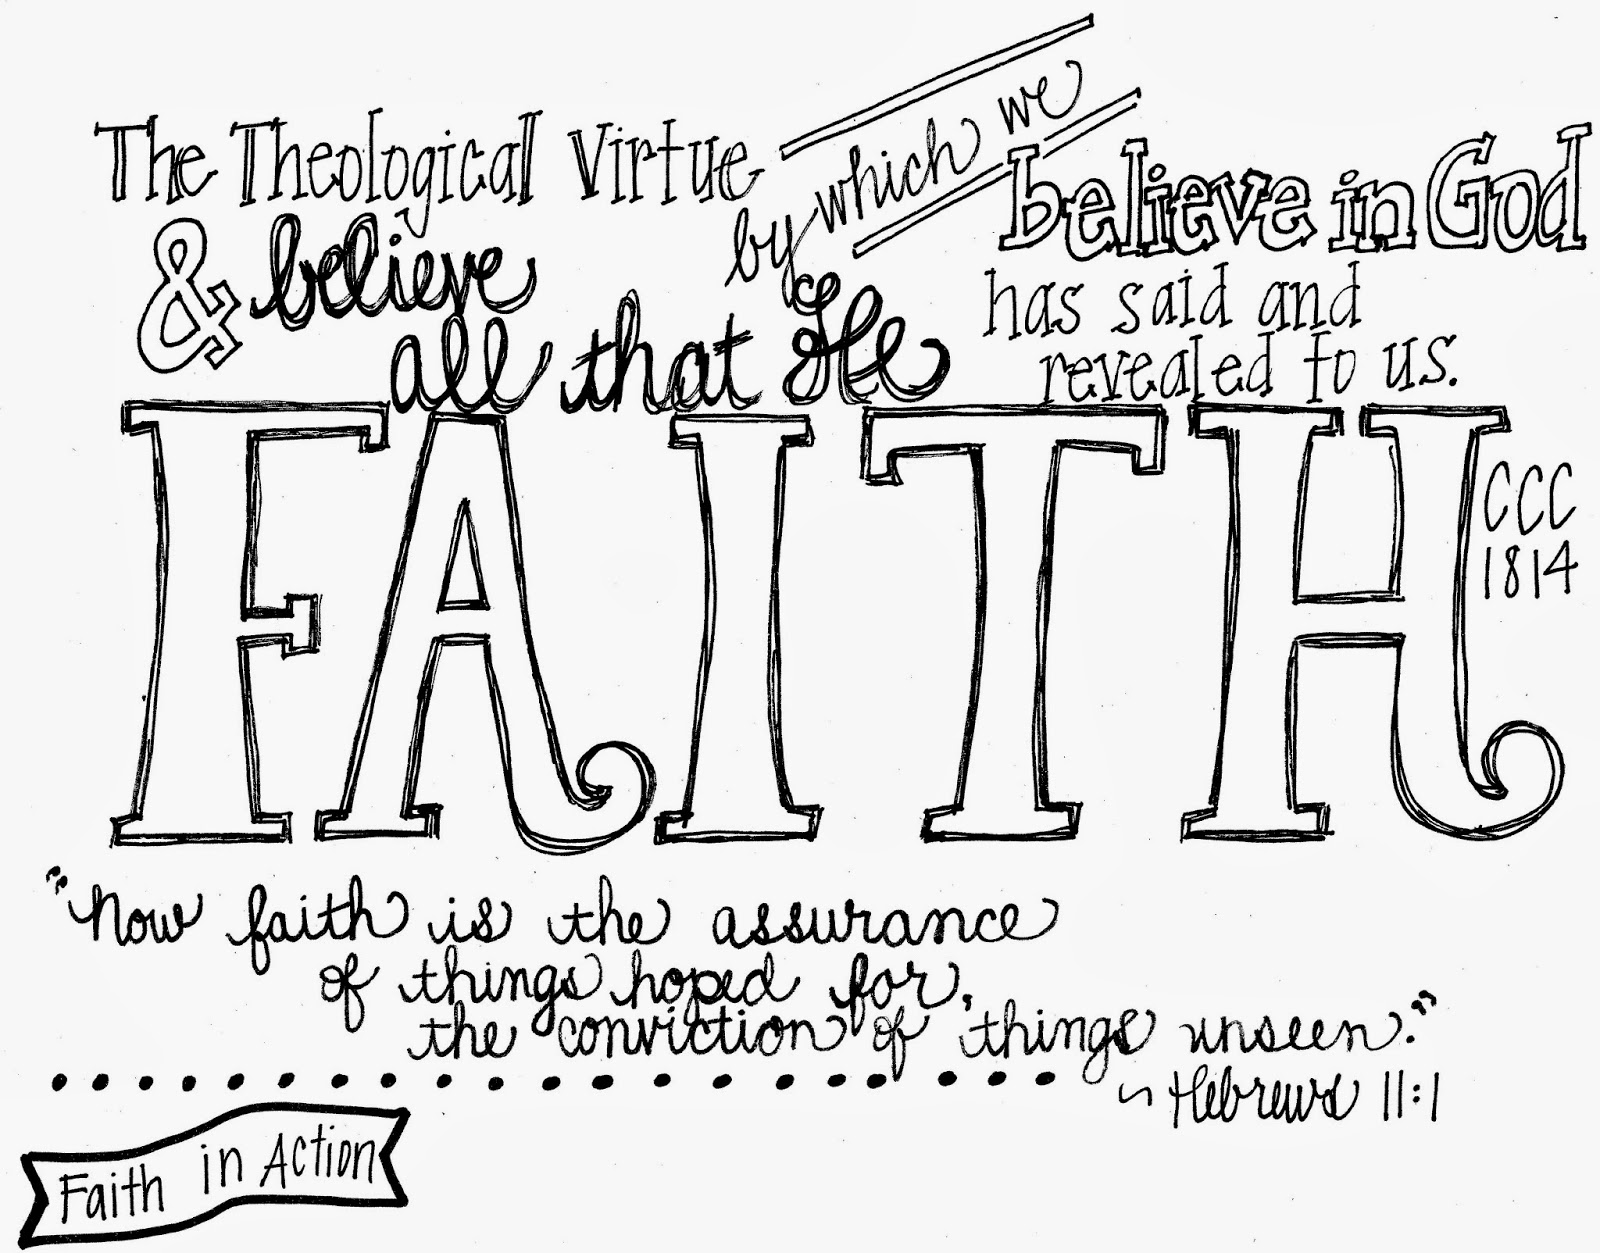 The Theological Virtue
by which we
believe in God
& believe
all that He
has said and
revealed to us.
FAITH
CCC
1814
"Now faith is the assurance
of things hoped for,
the conviction of things unseen."
~ Hebrews 11:1
Faith in Action